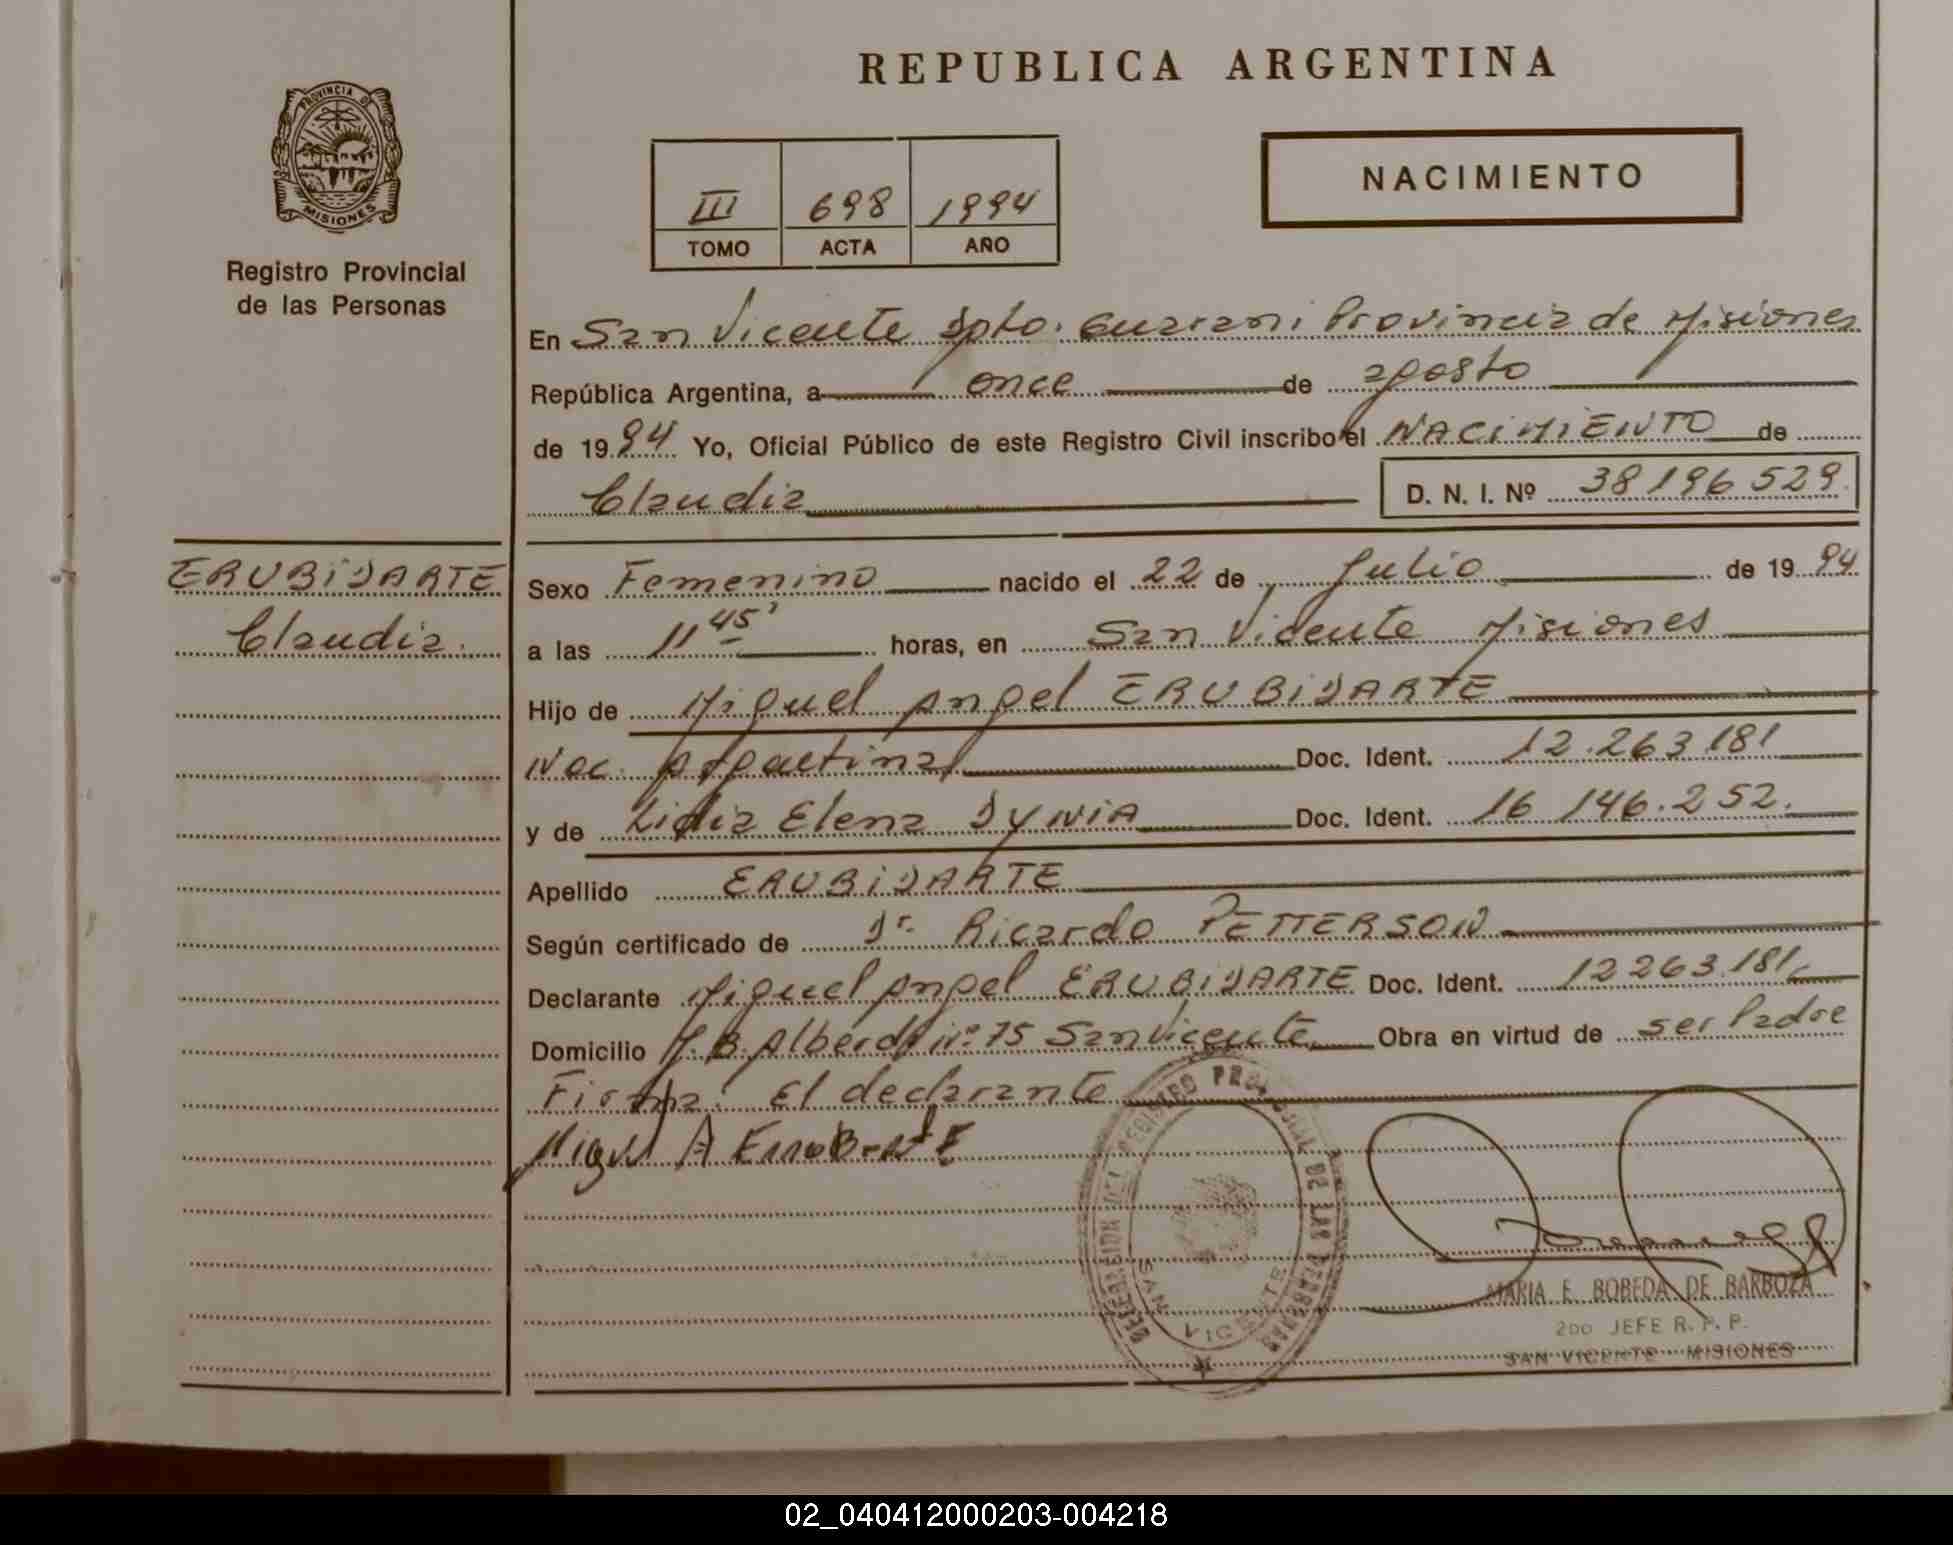 REPUBLICA ARGENTINA
PROVINCIA DE
MISIONES
Registro Provincial
de las Personas
III 698 1994
TOMO ACTA AÑO
NACIMIENTO
En San Vicente Dpto. Guarani Provincia de Misiones
República Argentina, a once de agosto
de 1994 Yo, Oficial Público de este Registro Civil inscribo el NACIMIENTO de
Claudia D. N. I. Nº 38196529.
ERUBIDARTE
Claudia.
Sexo Femenino nacido el 22 de Julio de 1994
a las 11 45' horas, en San Vicente Misiones
Hijo de Miguel Angel ERUBIDARTE
Nac. Argentina Doc. Ident. 12.263.181
y de Lidia Elena DYNIA Doc. Ident. 16 146.252.
Apellido ERUBIDARTE
Según certificado de Dr. Ricardo PETTERSON
Declarante Miguel Angel ERUBIDARTE Doc. Ident. 12263.181
Domicilio J.B. Alberdi Nº 75 San Vicente Obra en virtud de ser Padre
Firma: El declarante
Miguel A
DELEGACION DEL REGISTRO PROVINCIAL DE LAS PERSONAS
SAN VICENTE
MARIA E. BOBEDA DE BARBOZA
2DO JEFE R. P. P.
SAN VICENTE MISIONES
02_040412000203-004218